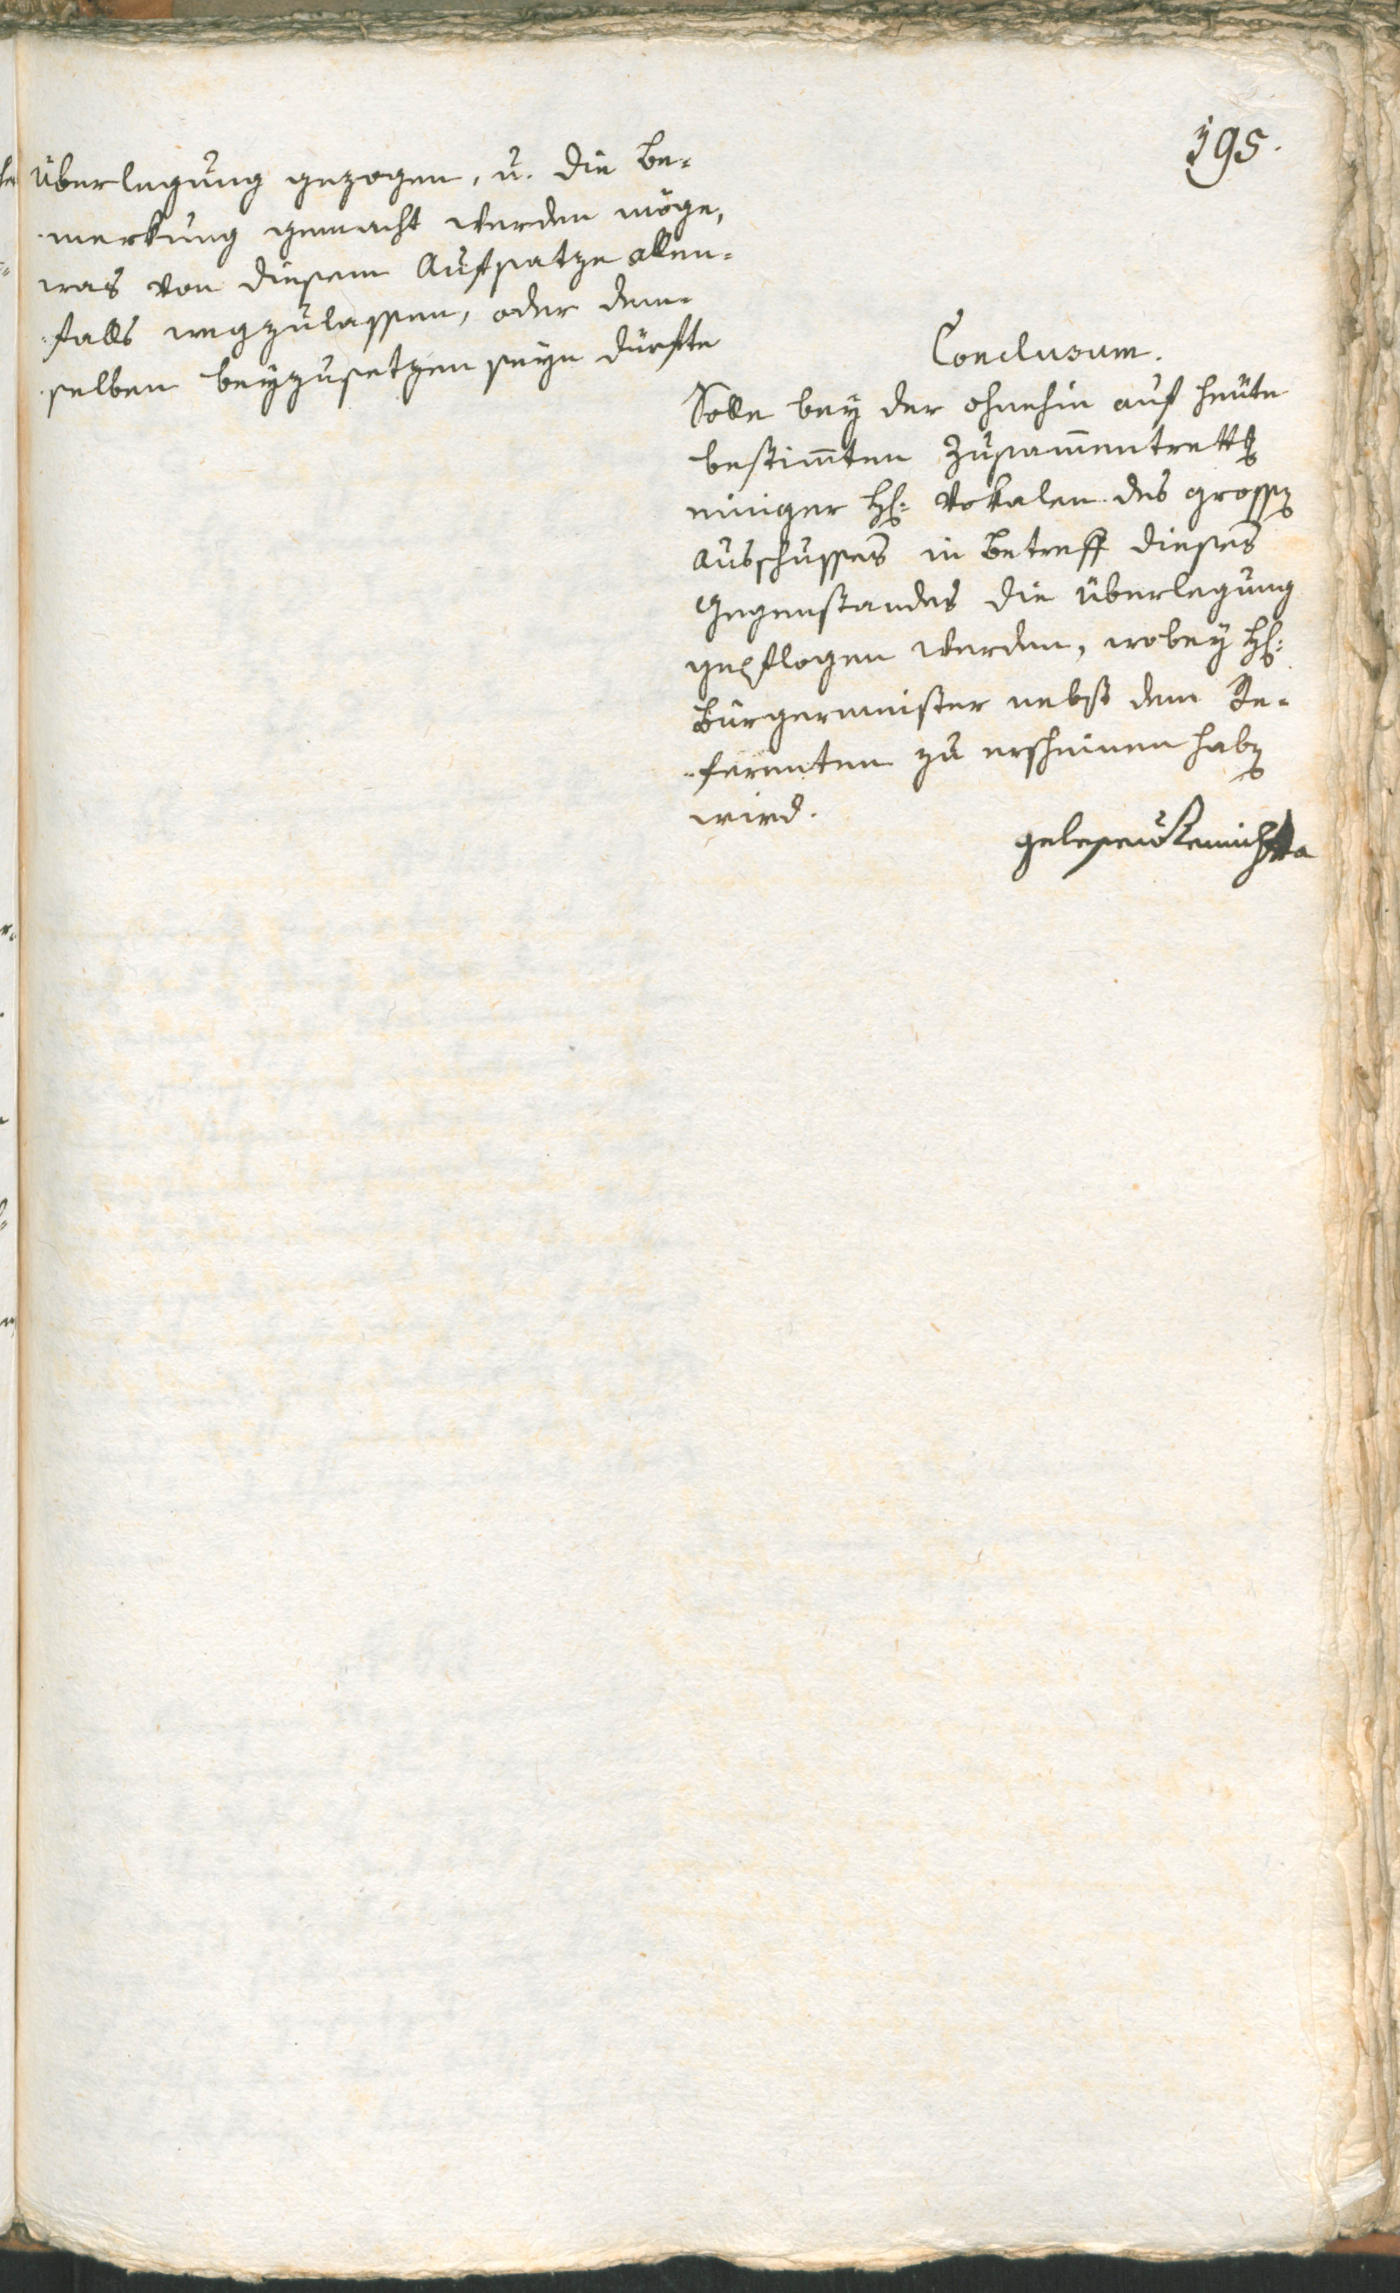 195.
Überlegung gezogen, u. die Be-
merkung gemacht werden möge,
was von diesem Aufsatze allen-
falls wegzulassen, oder dem-
selben beyzusetzen seyn dürfte
Conclusum.
Solle bey der ohnehin auf heüte
bestim̄ten Zusam̄entrettg
einiger H: Vokalen des grossen
Ausschusses in Betreff dieses
Gegenstandes die Überlegung
gepflogen werden, wobey H:
Bürgermeister nebst dem Re-
ferenten zu erscheinen haben
wird.
gelesen